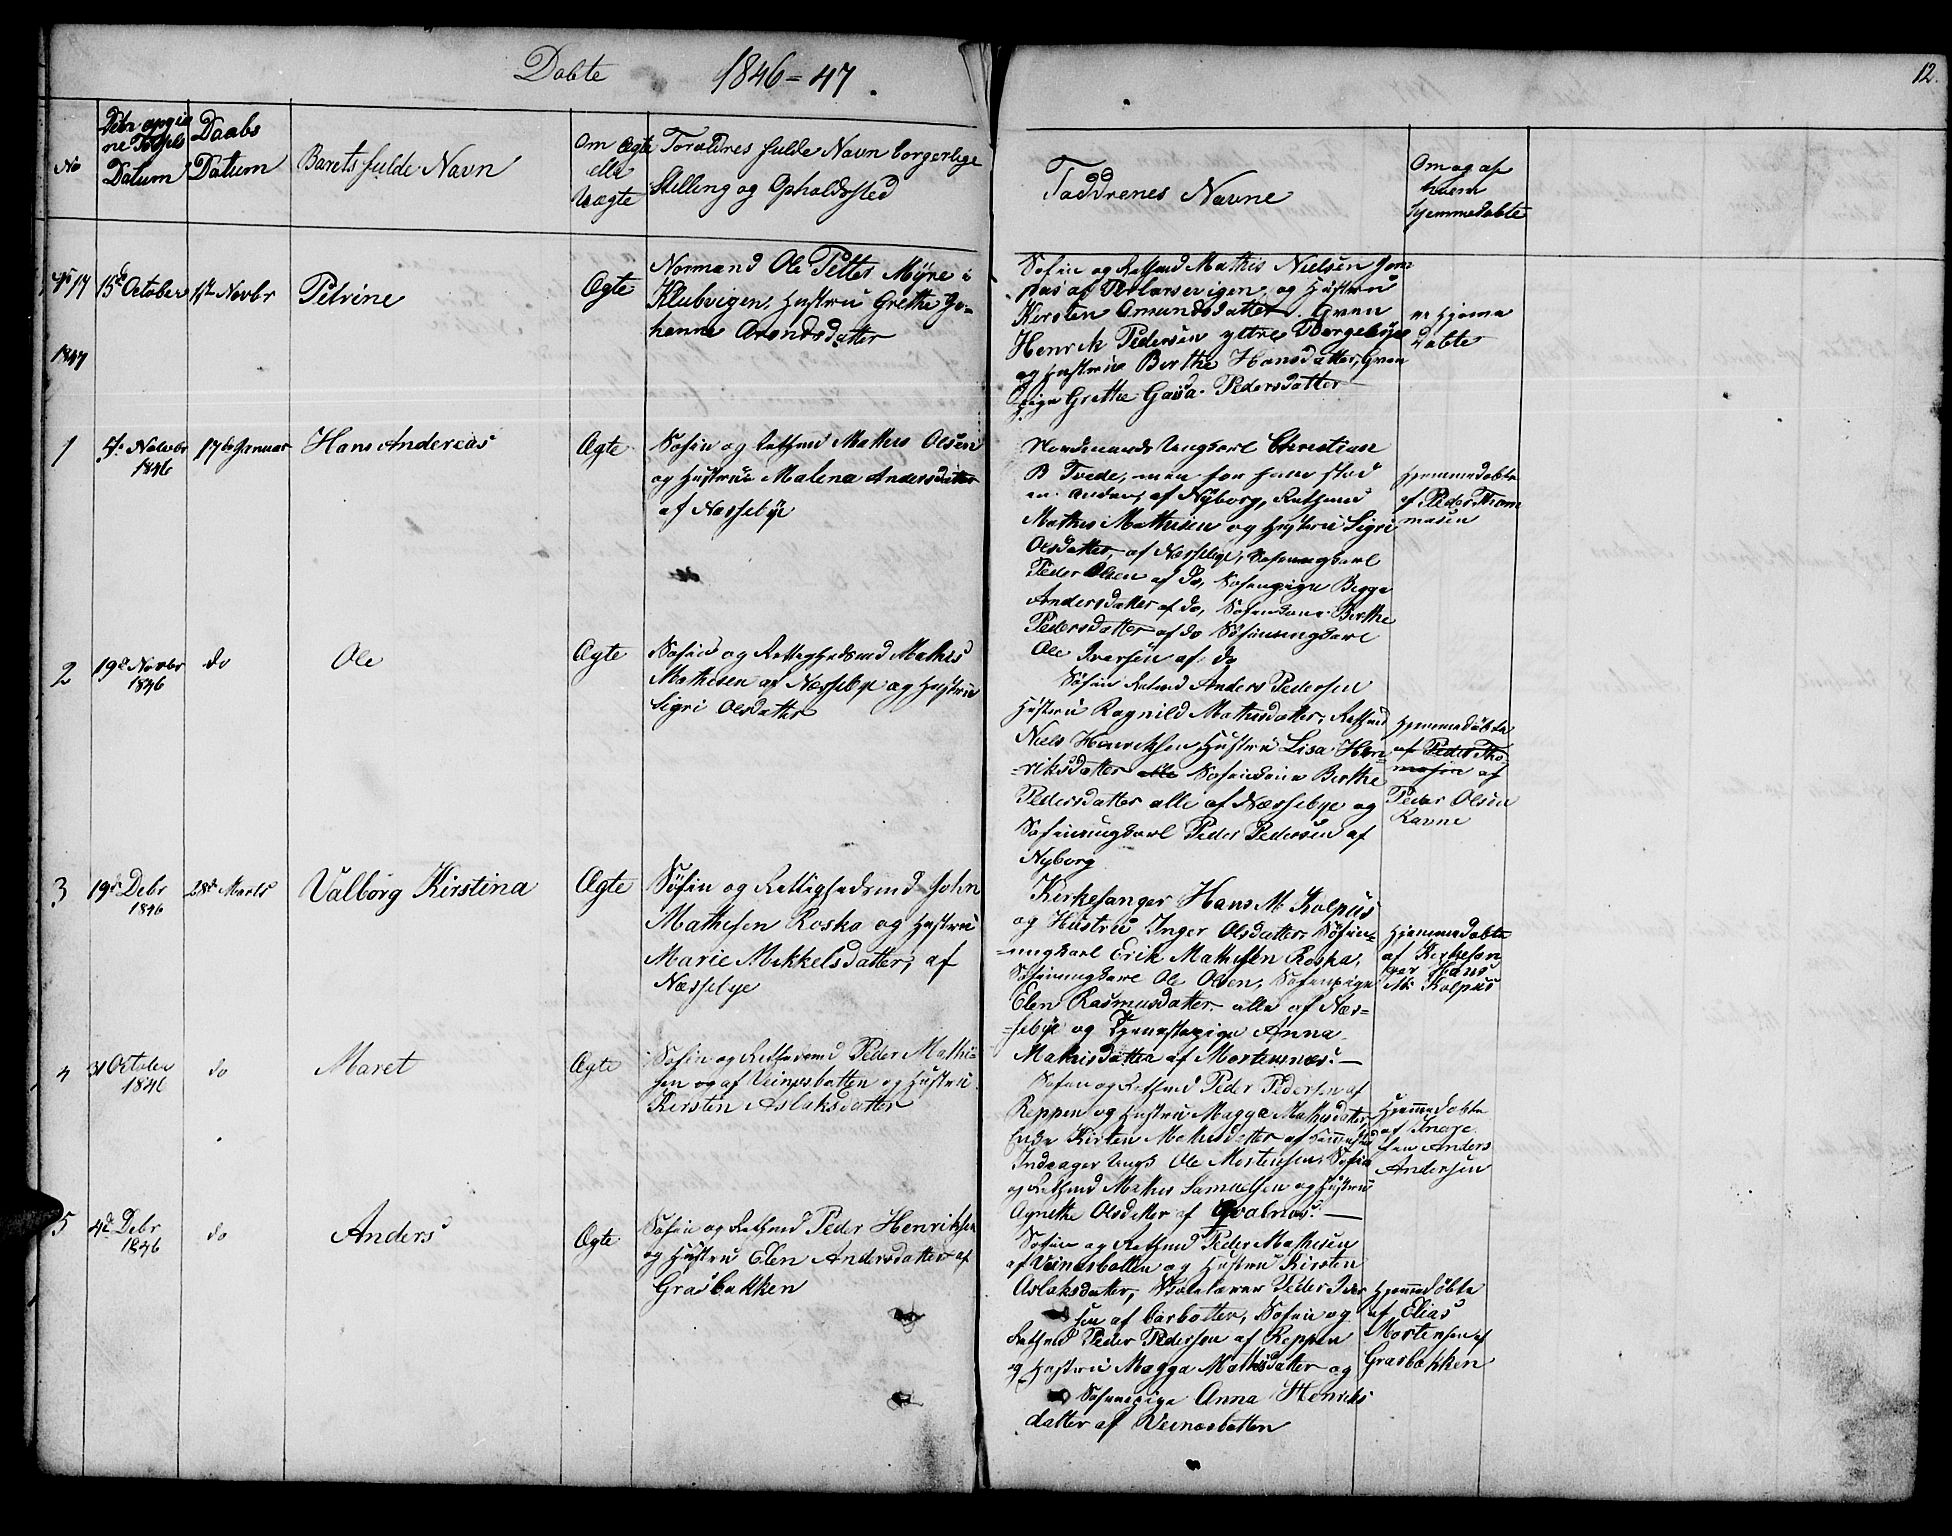 Døbte 1846=47.
12.
No
Datum
Daabs
Datum
Barets fulde Navn
Om Ægte
eller
Uægte
Forældres fulde Navn borgerlige
Stilling og Opholdssted
Faddrenes Navne
Om og af
hvem
hjemmedøbte
17
15de October
1ste Novbr
Petrine
Ægte
Normand Ole Petter Myre i
Klubvigen, Hustru Grethe Jo-
hanna Arondsdatter
Søfin og Rettmd Mathis Nielsen
og Hustrue
Kirsten Amundsdatter. Qvæn
Henrik Pedersen yttre Borgebye
og Hustrue Berthe Hansdatter, Qvæn
pige Grethe Gaisa Pedersdatter
hjeme
døbte
1847
1
Novbr
1846
17de Januar
Hans Andereas
Ægte
Søfin og Rettmd Mathis Olsen
og Hustrue Malena Andersdatter
af Næssebye
Nordmands Ungkarl Christian
B Tvede, men for ham stod
en anden, af Nyborg, Rettmd
Mathis Mathisen og Hustru Sigri
Olsdatter, af Næssebye, Søfinungkarl
Peder Olsen af do, Søfinpige Begga
Andersdatter af do, Søfinkone Berthe
Pedersdatter af do Søfinungkarl
Ole Iversen af do
Hjemmedøbte
af Peder Thom
masen
2
19de Novbr
1846
do
Ole
Ægte
Søfin og Rettighedsmd Mathis
Mathisen af Næssebye og Hustrue
Sigri Olsdatter
Søfin Retmd Anders Pedersen
Hustru Ragnild Mathisdatter, Rettmd
Niels Henriksen, Hustru Lisa Hen-
-riksdatter alle Søfinkone Berthe
Pedersdatter alle af Næssebye og
Søfinungkarl Peder Pedersen af
Nyborg
Hjemmedøbte
af Peder Tho-
masen af
Peder Olsen
Ravne
3
19de Debr
1846
28de Marts
Valborg Kirstina
Ægte
Søfin og Rettighedsmd John
Mathisen Roska og Hustru
Marie Mikkelsdatter, af
Næssebye
Kirkesanger Hans M. Kolpus
og Hustru Inger Olsdatter, Søfin-
-ungkarl Erik Mathisen Roska,
Søfinungkarl Ole Olsen, Søfinpige
Elen Rasmusdatter alle af Næs-
-sebye og Tjenestepige Anna
Mathisdatter af Mortensnæs. —
Hjemmedøbte
af Kirkesan
ger Hans
M. Kolpus
4
31 October
1846
do
Maret
Ægte
Søfin og Rettigdsmd Peder Mathi-
sen og af Veinesbotten og Hustru
Kirsten Aslaksdatter
Søfin og Rettmd Peder Pedersen af
Reppen og Hustru Magga Mathisdatter,
Enke Kirsten Mathisdatter af
Ole Mortensen, Søfin
og Rettmd Mathis Samuelsen og Hustru
Agnethe Olsdatter af Qvalnæs. —
Hjemmedøbte
af
Anders
Andersen
5
4de Debr
1846
do
Anders
Ægte
Søfin og Rettmd Peder Henriksen
og Hustru Elen Andersdatter af
Græsbakken
Søfin og Rettmd Peder Mathisen
af Veinesbotten og Hustru Kirsten
Aslaksdatter, Skolelærer Peder Iver
sen af Carlbotten, Søfin og
Rettmd Peder Pedersen af Reppen
og Hustru Magga Mathisdatter og
Søfinpige Anna Henriks
datter af Veinesbotten
Hjemmedøbte
af Elias
Mortensen af
Græsbakken